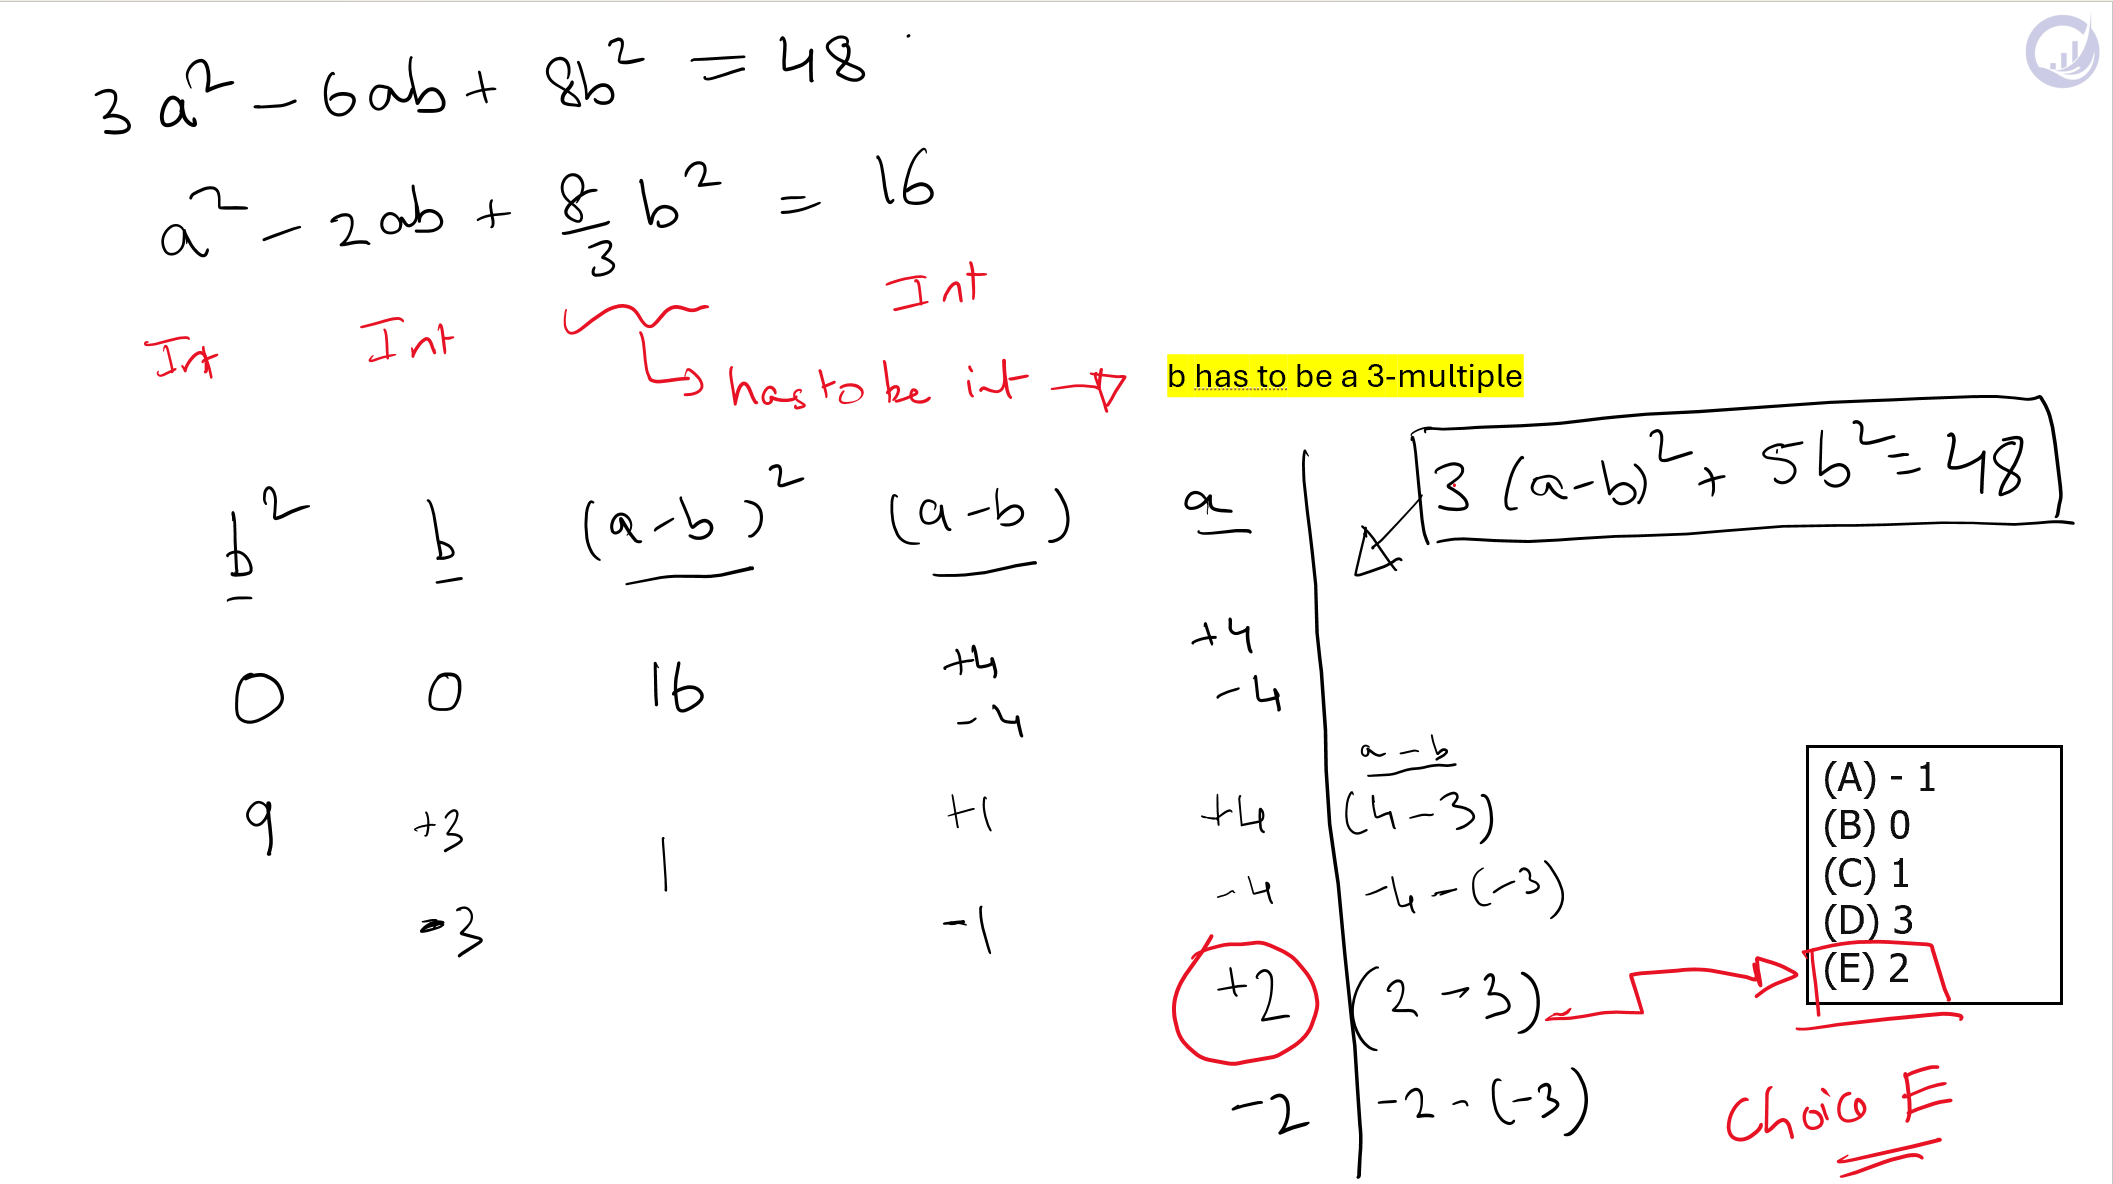 3a² - 6ab + 8b² = 48
a² - 2ab + 8/3 b² = 16
Int Int Int
has to be int → b has to be a 3-multiple
3(a-b)² + 5b² = 48
b² b (a-b)² (a-b) a
0 0 16 +4 +4
-4 -4
a-b
9 +3 1 +1 +4 (4-3)
-4 -4-(-3)
-3 -1
+2 (2-3)
-2 -2-(-3)
(A) - 1
(B) 0
(C) 1
(D) 3
(E) 2
Choice E